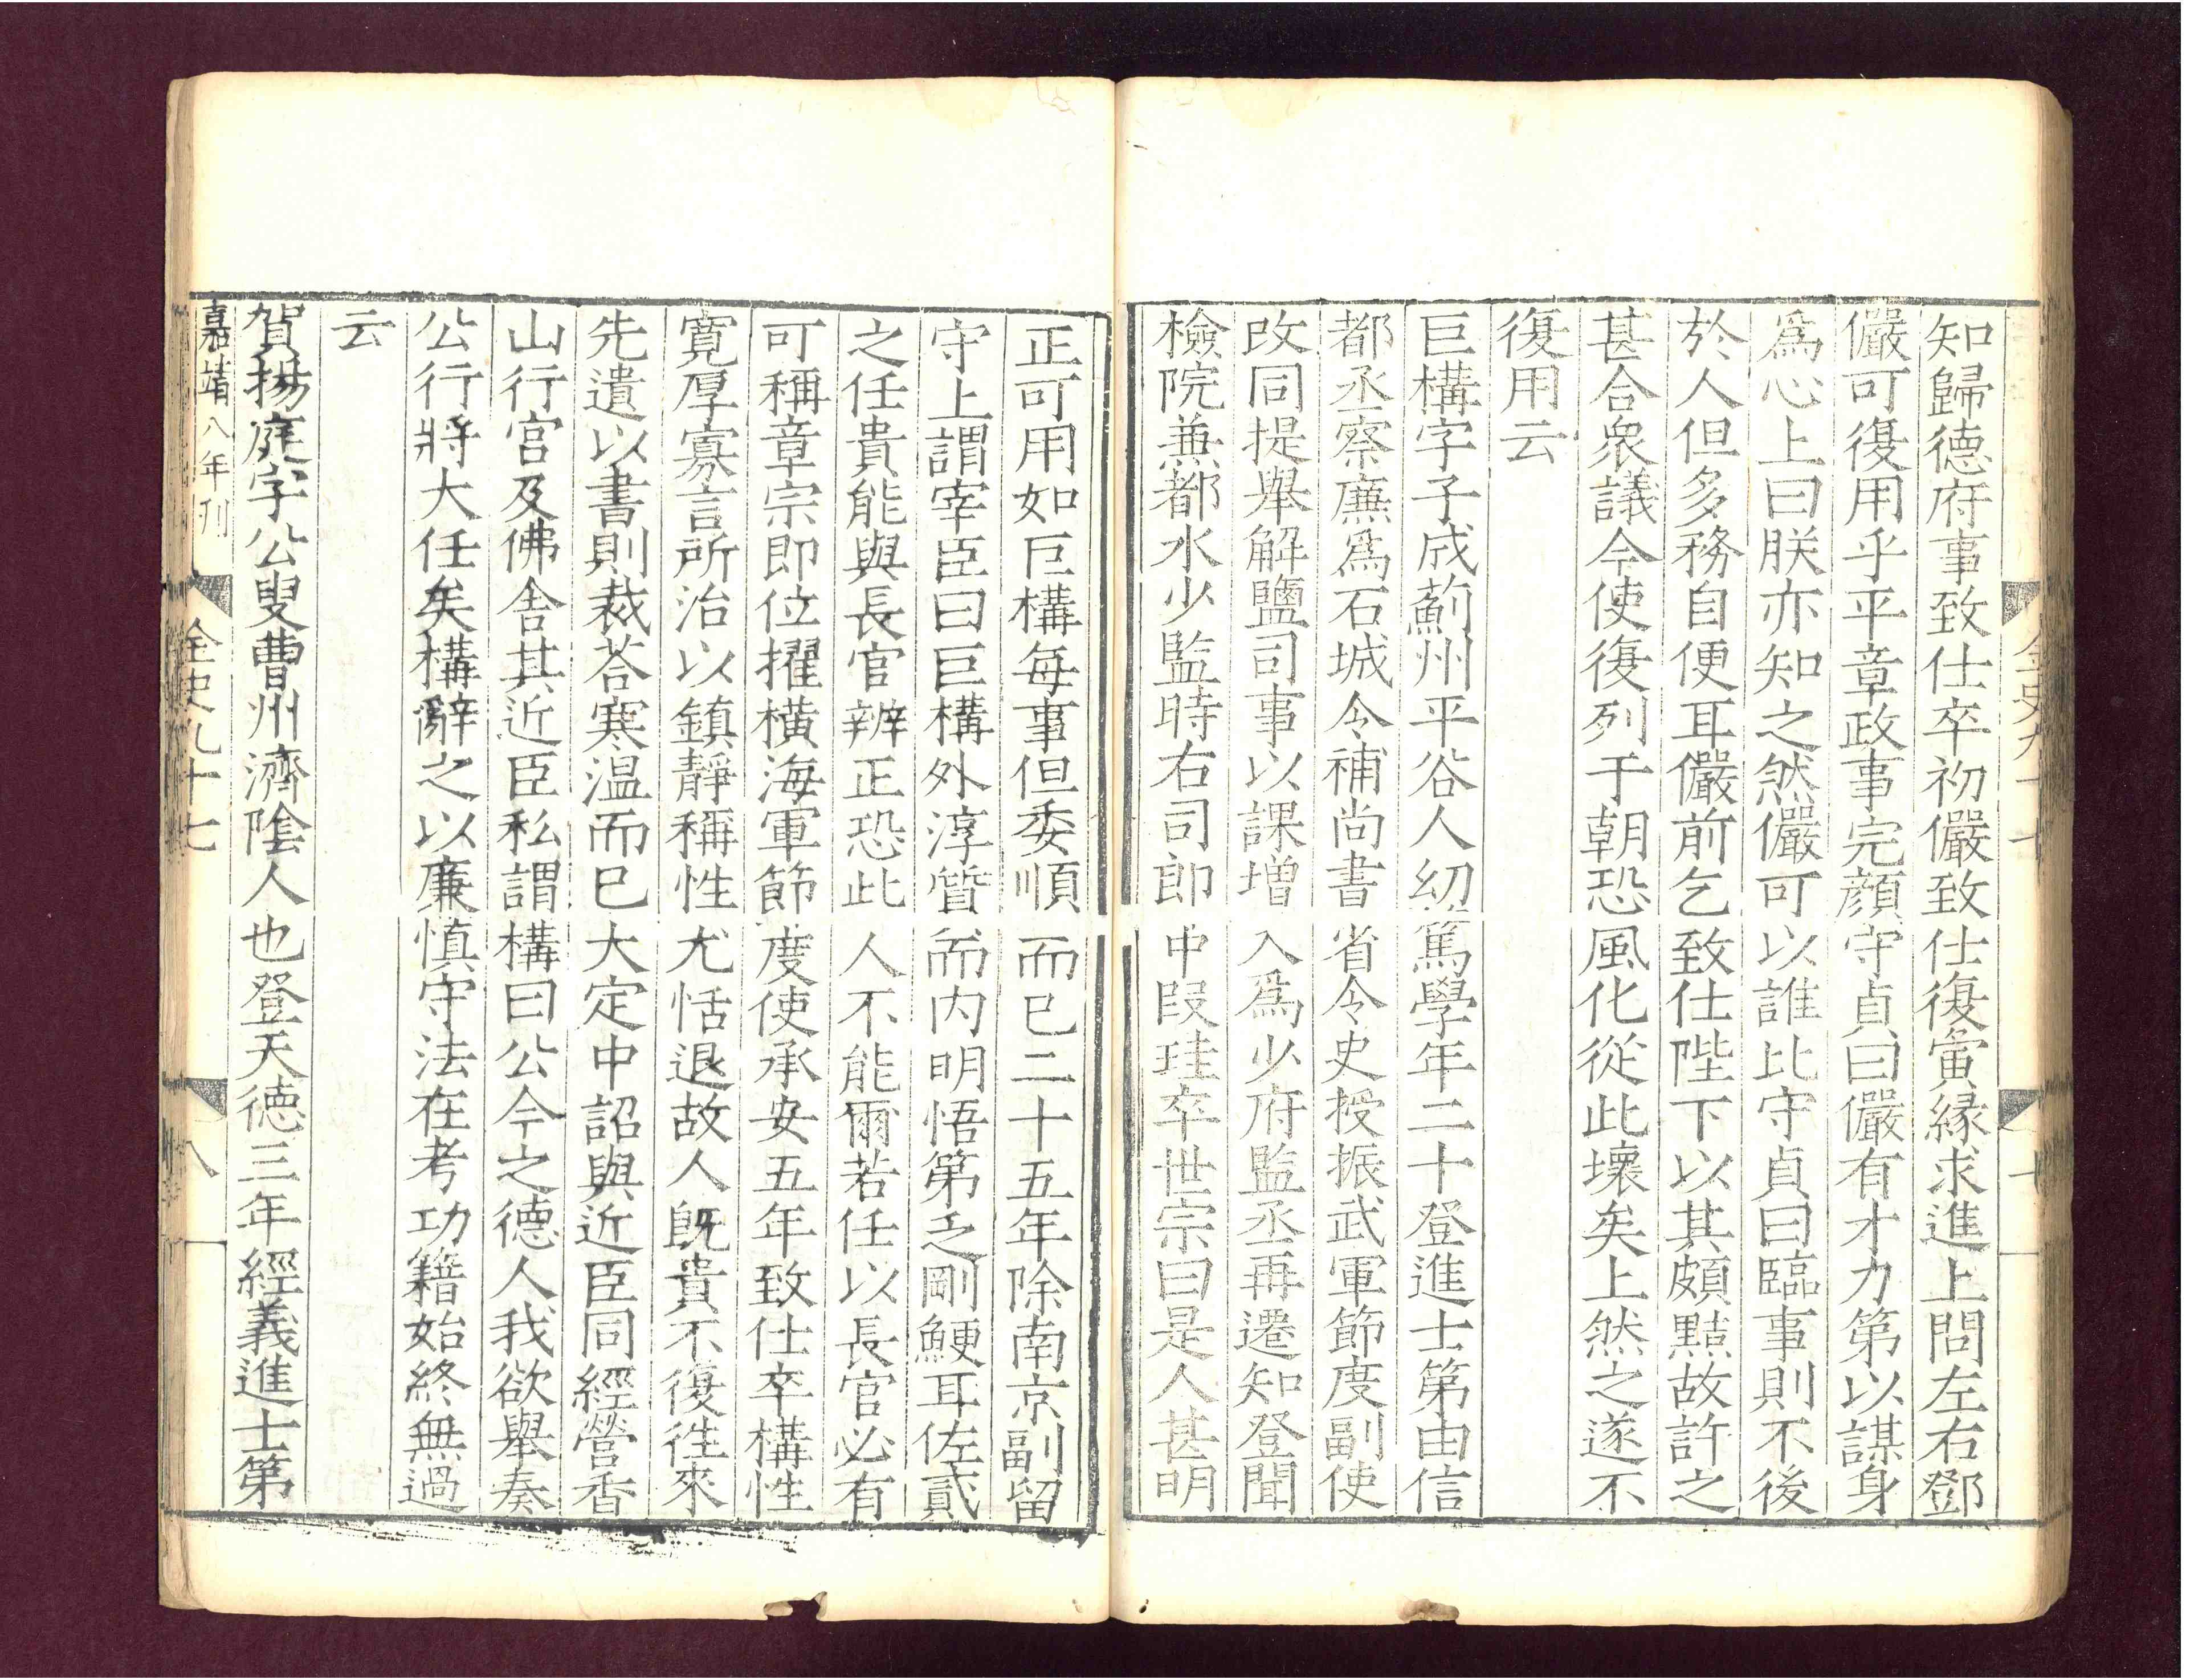 知歸德府事致仕卒初儼致仕復寅縁求進上問左右鄧
儼可復用乎平章政事完顔守貞曰儼有才力第以謀身
爲心上曰朕亦知之然儼可以誰比守貞曰臨事則不後
於人但多務自便耳儼前乞致仕陛下以其頗黠故許之
甚合衆議今使復列于朝恐風化從此壞矣上然之遂不
復用云
巨構字子成薊州平谷人幼篤學年二十登進士第由信
都丞察廉爲石城令補尚書省令史授振武軍節度副使
改同提舉解鹽司事以課增入爲少府監丞再遷知登聞
檢院兼都水少監時右司郎中段珪卒世宗曰是人甚明
金史九十七
七
正可用如巨構每事但委順而已二十五年除南京副留
守上謂宰臣曰巨構外淳質而内明悟第乏剛鯁耳佐貳
之任貴能與長官辨正恐此人不能爾若任以長官必有
可稱章宗即位擢橫海軍節度使承安五年致仕卒構性
寬厚寡言所治以鎮靜稱性尤恬退故人既貴不復徃來
先遺以書則裁荅寒温而已大定中詔與近臣同經營香
山行宫及佛舍其近臣私謂構曰公今之德人我欲舉奏
公行將大任矣構辭之以廉慎守法在考功籍始終無過
云
賀揚庭字公叟曹州濟陰人也登天德三年經義進士第
嘉靖八年刊
金史九十七
八